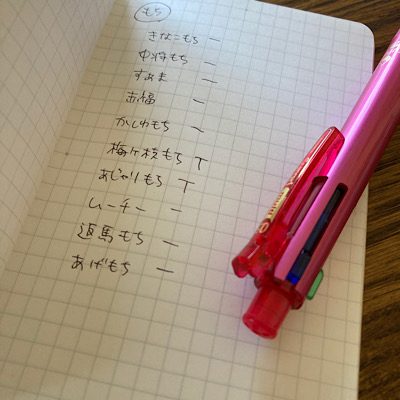 もち
きなこもち 一
中将もち 一
すあま 一
赤福 一
かしわもち 一
梅ヶ枝もち T
あじゃりもち T
ムーチー 一
返馬もち 一
あげもち 一